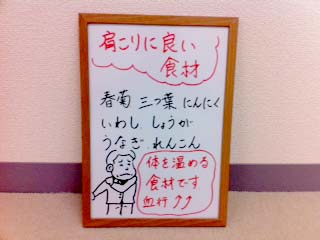 肩こりに良い
食材
春菊 三つ葉 にんにく
いわし しょうが
うなぎ れんこん
体を温める
食材です
血行↑↑